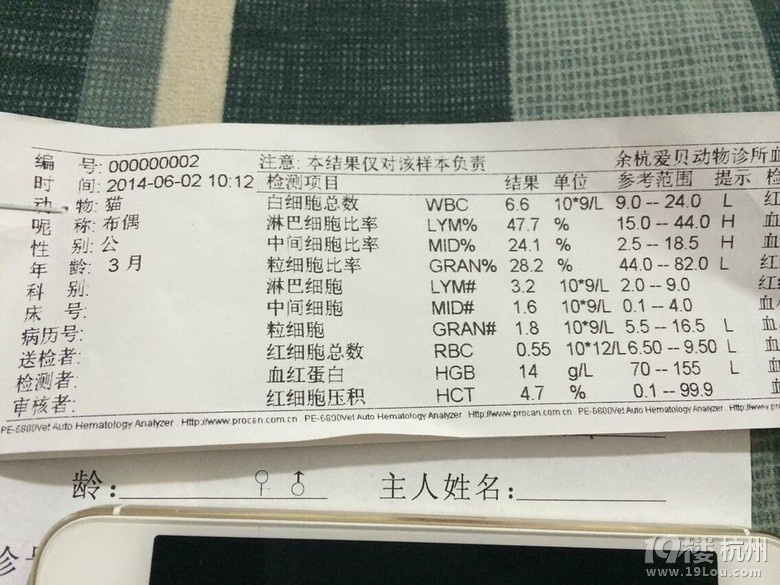 编 号: 000000002 注意: 本结果仅对该样本负责 余杭爱贝动物诊所血
时 间: 2014-06-02 10:12 检测项目 结果 单位 参考范围 提示 检
动 物: 猫 白细胞总数 WBC 6.6 10*9/L 9.0 -- 24.0 L 红
呢 称: 布偶 淋巴细胞比率 LYM% 47.7 % 15.0 -- 44.0 H
性 别: 公 中间细胞比率 MID% 24.1 % 2.5 -- 18.5 H
年 龄: 3 月 粒细胞比率 GRAN% 28.2 % 44.0 -- 82.0 L 红
科 别: 淋巴细胞 LYM# 3.2 10*9/L 2.0 -- 9.0
床 号: 中间细胞 MID# 1.6 10*9/L 0.1 -- 4.0
病历号: 粒细胞 GRAN# 1.8 10*9/L 5.5 -- 16.5 L 血
送检者: 红细胞总数 RBC 0.55 10*12/L 6.50 -- 9.50 L 血
检测者: 血红蛋白 HGB 14 g/L 70 -- 155 L 血
审核者: 红细胞压积 HCT 4.7 % 0.1 -- 99.9
PE-6800Vet Auto Hematology Analyzer . Http://www.procan.com.cn PE-6800Vet Auto Hematology Analyzer . Http://www.procan.com.cn PE-6800Vet
龄: ♀ ♂ 主人姓名:
诊
19楼杭州
www.19Lou.com